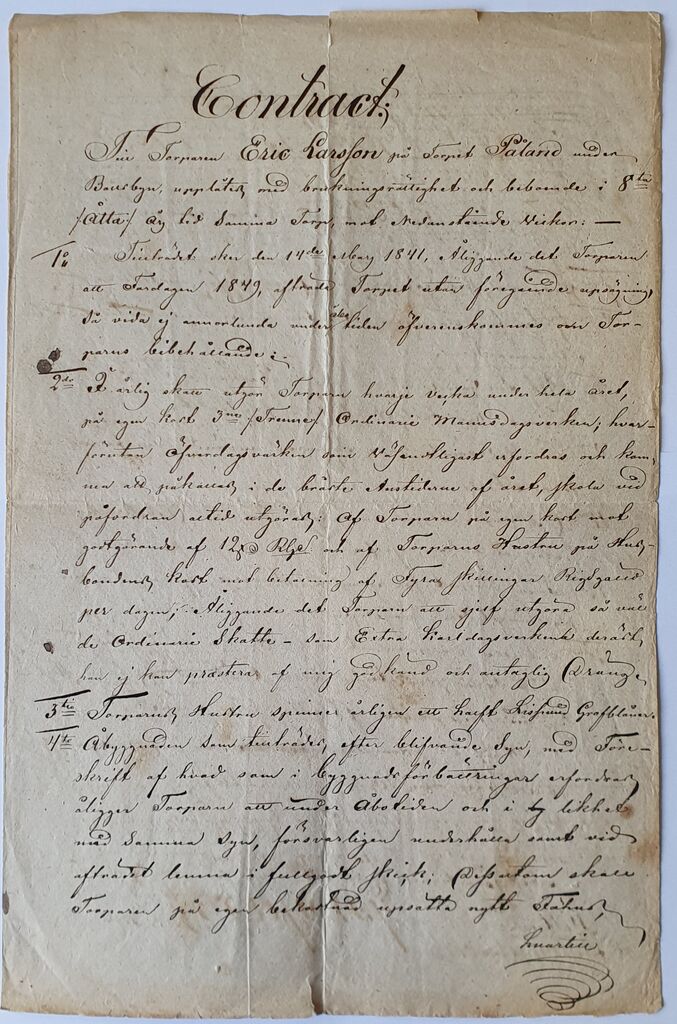 Contract;
Till Torparen Eric Larsson på Torpet Påland under
Bousbyn, upplåtes med brukningsrättighet och beboende i 8ta
/:Åtta:/ Års tid Samma Torp, mot Nedanstående Vilkor: —
1o Tillträdet sker den 14de Mars 1841, Åliggande det Torparen
att Fardagen 1849, afträda Torpet utan föregående upsägning,
så vida ej annorlunda under tiden öfverenskommes om Tor-
parens bibehållande;
2do I årlig skatt utgör Torparen hvarje vecka under hela året,
på egen kost 3ne /:Trenne:/ Ordinarie Mansdagsverken; hvar-
förutan Öfverdagsvärken som Väsendtligast erfordras och kom-
ma att påkallas i de brådste Anstiderne af året, skola vid
påfordran altid utgöras: af Torparn på egen kost mot
godtgörande af 12 s RgS och af Torparens Hustru på Hus-
bondens kost mot betalning af Fyra skillingar Riksgäld
per dagen; Åliggande det Torparn att sjelf utgöra så väl
de Ordinarie Skatte- som Extra karldagsverkena derest
han ej kan prestera af mig godkänd och antaglig Dräng.
3tio Torparens Hustru spinner årligen ett halft Lispund Grofblånor.
4to Åbyggnaden som tillträdes, efter blifvande Syn, med Före-
skrift af hvad som i byggnads förbättringar erfordras
åligger Torparn att under Åbotiden och i likhet
med Samma Syn, försvarligen underhålla samt vid
afträdet lemna i fullgodt skick; Dessutom skall
Torparen på egen bekostnad upsätta nytt Fähus,
hvartill